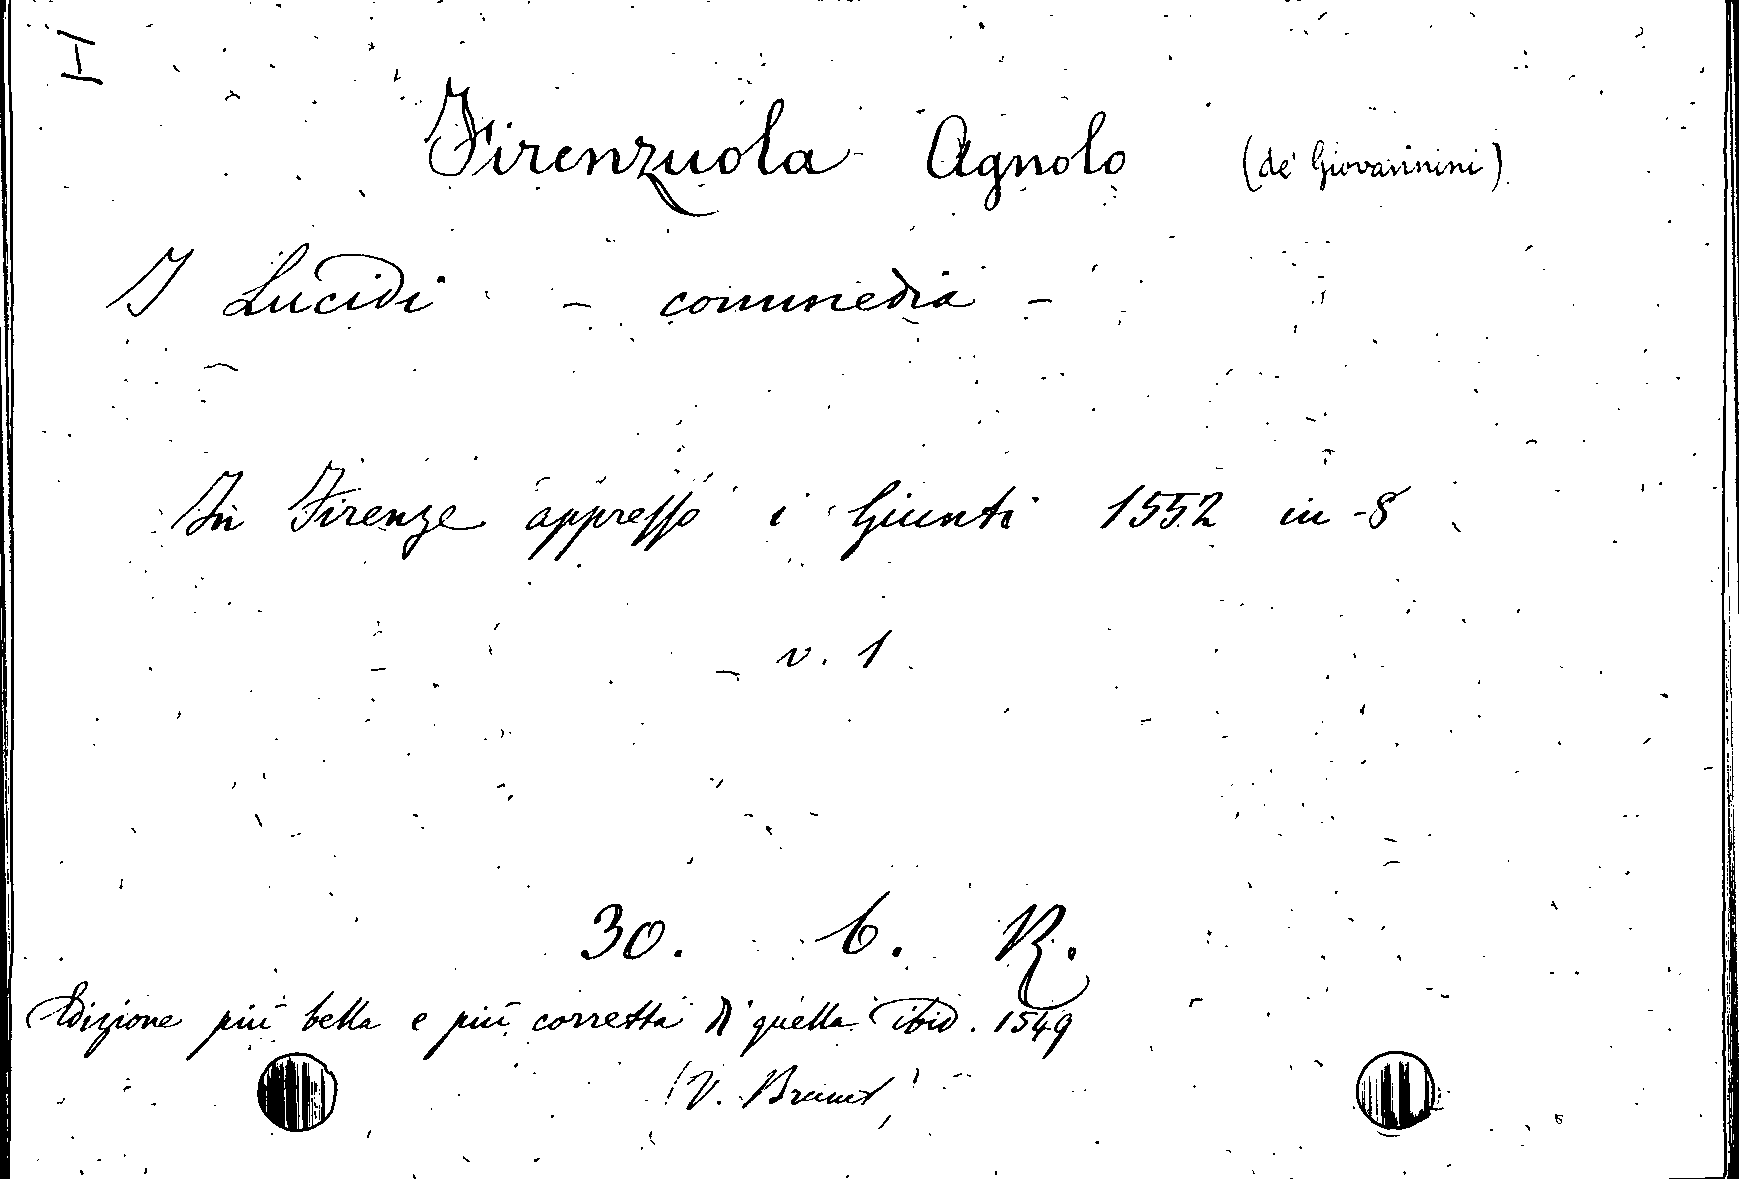 H
Firenzuola Agnolo (de' Giovannini)
I Lucidi - commedia -
In Firenze appresso i Giunti 1552 in-8
v. 1
30. 6. R.
Edizione più bella e più corretta di quella ibid. 1549
(V. Brunet)